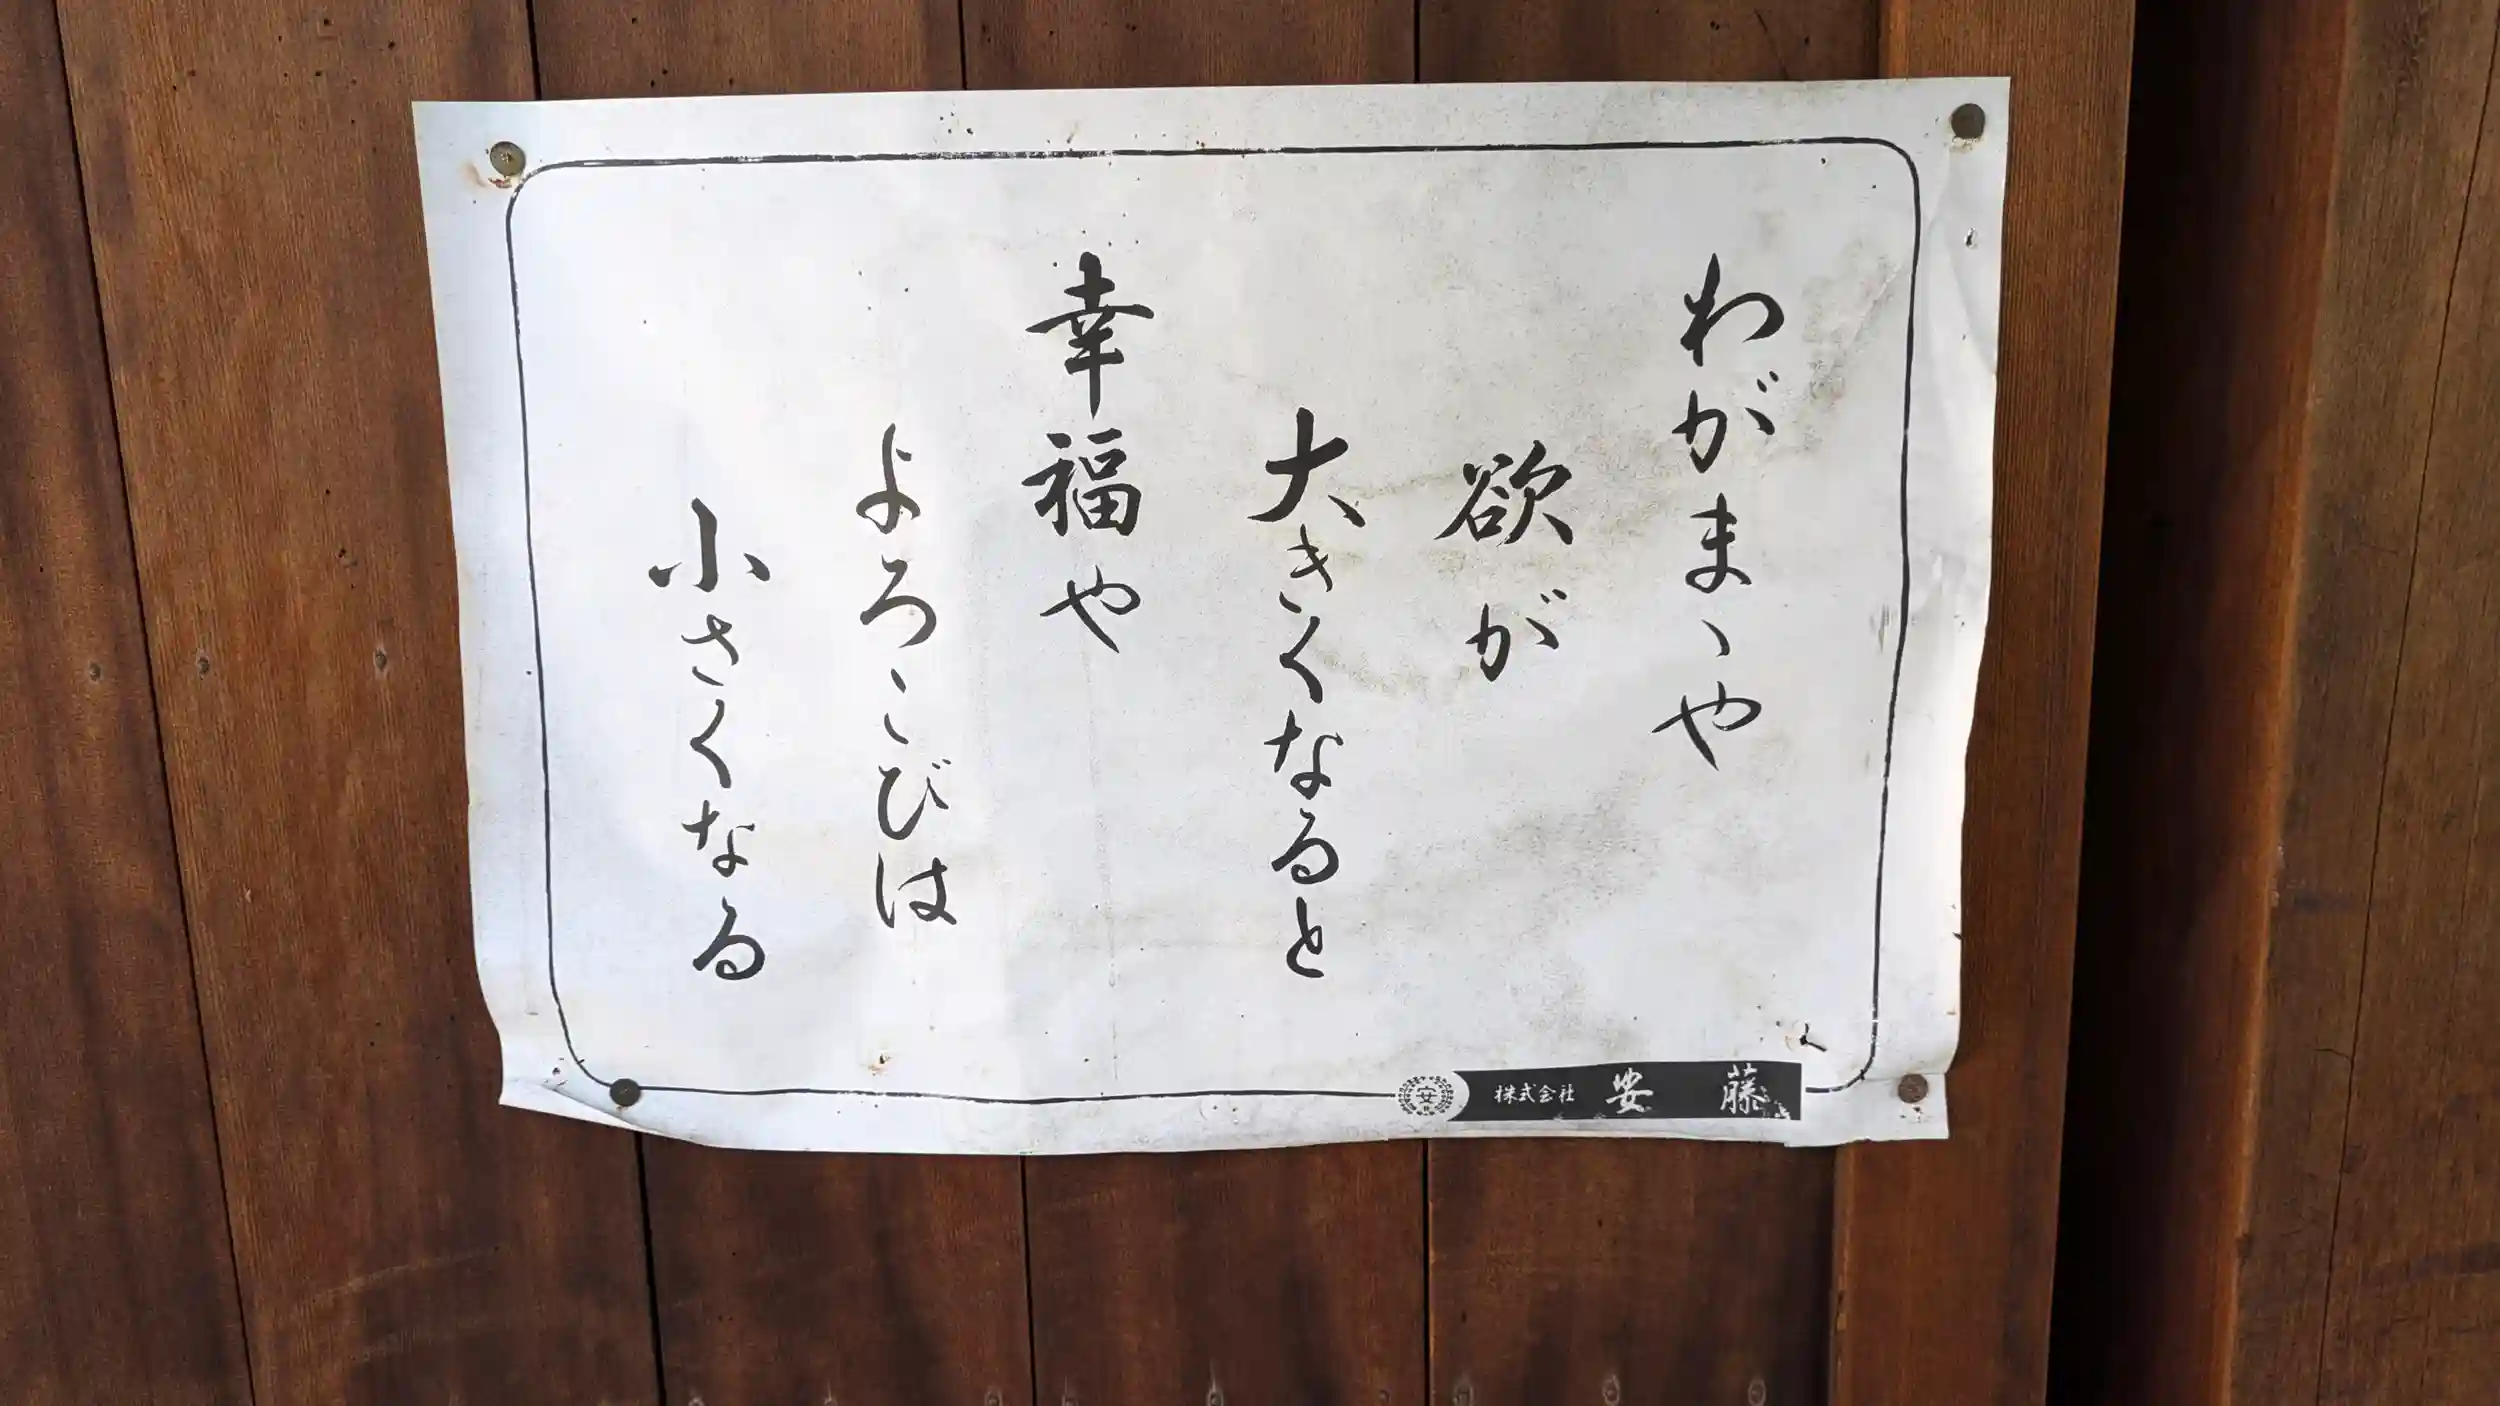 わがまゝや
欲が
大きくなると
幸福や
よろこびは
小さくなる
安
株式会社 安 藤